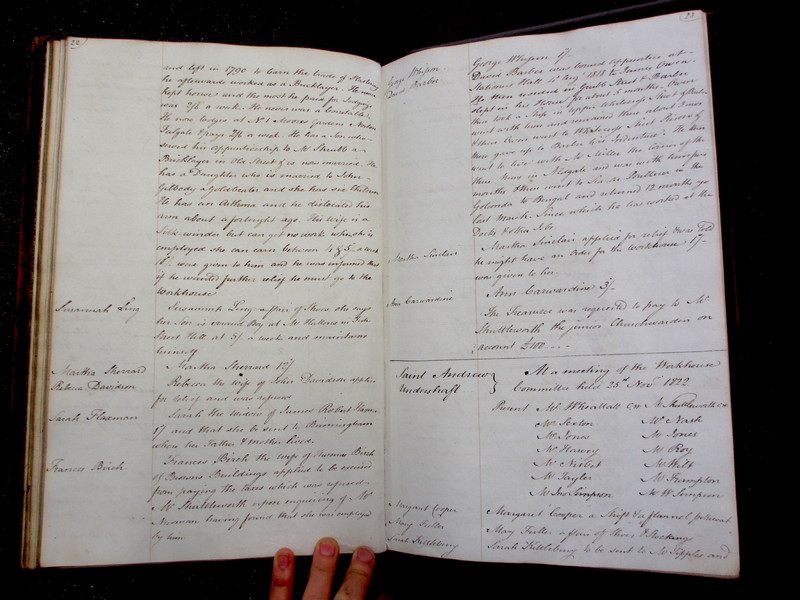 22
and left in 1790 to learn the trade of
he afterwards worked as a Bricklayer. He never
kept house and the most he paid for Lodgings
was 2/6 a week. He never was a Constable.
He now lodges at No. Gardens
& pays 2/6 a week. He has a Son who
served his apprenticeship to Mr a
Bricklayer in Old Street & is now married. He
has a Daughter who is married to John
a Goldbeater and she has six Children
He has an Asthma and he dislocated his
arm about a fortnight ago. His wife is a
Silk winder but can get no work when she is
employed she can earn between 4 & 5/ a week
were given to him and he was informed that
if he wanted further relief he must go to the
Workhouse
Susannah Ling
Susannah Ling a pair of Shoes she says
her Son is errand Boy at Mr in
Street at 5/ a week and maintains
himself
Martha Sherrard
Martha Sherrard 12/
Rebecca Davidson
Rebecca the wife of John Davidson applies
for relief and was refused
Sarah Flaxman
Sarah the widow of James Robert
17/ and that she be sent to Birmingham
where her Father & Mother lived.
Frances Birch
Frances Birch the wife of Thomas Birch
of Browns Buildings applied to be excused
from paying the taxes which was refused
Mr Shuttleworth upon enquiring of Mr
Newman having found that she was employed
by him
23
George Whipson
George Whipson 17.
David Barber
David Barber was bound apprentice at
Stationers Hall 10 Augt 1813 to James Owen
He then resided in Street & Barber
slept in his House for about 3 months. Owen
then took a Shop in Upper Whitecross Street & Barber
went with him and remained there about 3
& then Owen went to Whitecross Street Prison &
there gave up to Barber his Indenture. He then
went to live with Mr Miller the Corner of the
three in Aldgate and was with him four
months & then went to Sea as in the
Golconda to Bengal and returned 12 months ago
last March. Since which he has worked at the
Docks & other Jobs
Martha Sinclair
Martha Sinclair applies for relief & was told
he might have an Order for the Workhouse 1/-
was given to her.
Ann Carwardine
Ann Carwardine 3/-
The Treasurer was requested to pay to Mr
Shuttleworth the junior Churchwarden on
account £100 - - -
Saint Andrew
Undershaft
At a meeting of the Workhouse
Committee held 25th Novr 1822
Present Mr Wheatall C W Mr Shuttleworth C W
Mr Sexton Mr Nash
Mr Jones Mr Jones
Mr Harvey Mr Roy
Mr Niblet Mr Wilt
Mr Taylor Mr Frampton
Mr Jno Simpson Mr W Simpson
Margaret Cooper
Margaret Cooper a Shift & a flannel petticoat
Mary Fuller
Mary Fuller a pair of Shoes & Stockings
Sarah Kettlebury
Sarah Kettlebury to be sent to Mr Tipples and